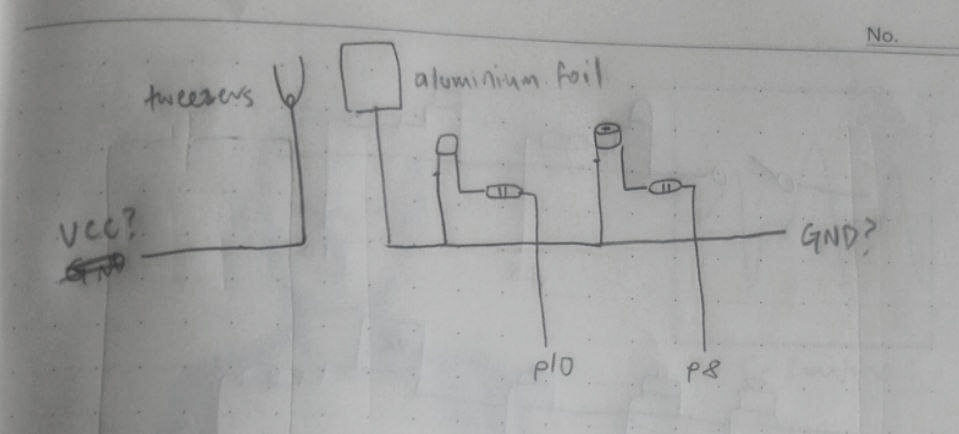 No.
tweezers
aluminium foil
VCC?
GND
GND?
p10
p8